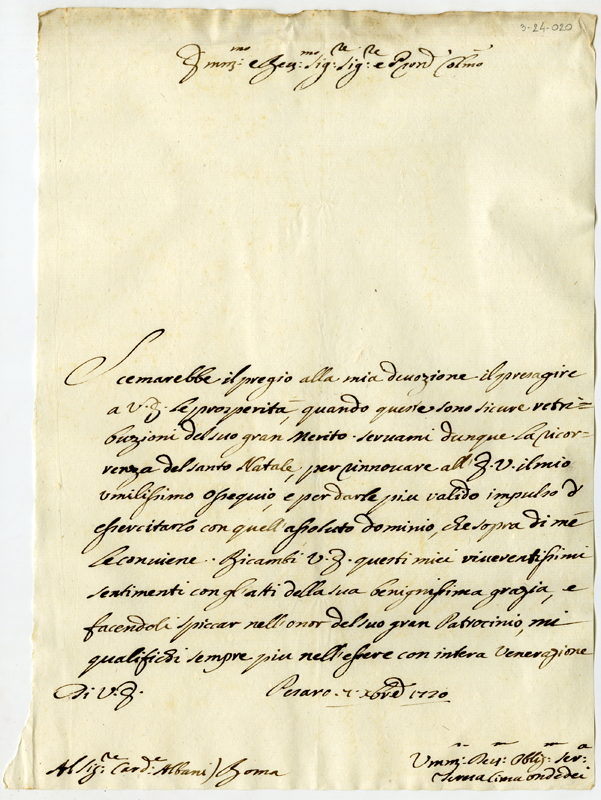 3-24-020
Emm:mo e Reu:mo Sig:re Sig:re e Pron Colmo
Scemarebbe il pregio alla mia deuozione il presagire
a V. E. le prosperità, quando queste sono sicure retri=
buzioni del suo gran Merito. seruami dunque la ricor=
renza del santo Natale, per rinnouare all'E. V. il mio
vmilissimo ossequio, e per darle piu valido impulso d'
essercitarlo con quell'assoluto dominio, che sopra di me
le conuiene. Ricambi V. E. questi miei riuerentissimi
sentimenti con gl'atti della sua benignissima grazia, e
facendoli spiccar nell'onor del suo gran Patrocinio, mi
qualifichi sempre piu nell'essere con intera Venerazione
Di V. E. Pesaro 7 Xbre 1720
Vmm: Deu: Obblig: Ser:a
Al Sig:re Card:e Albani) Roma Teresa Cima ondedei